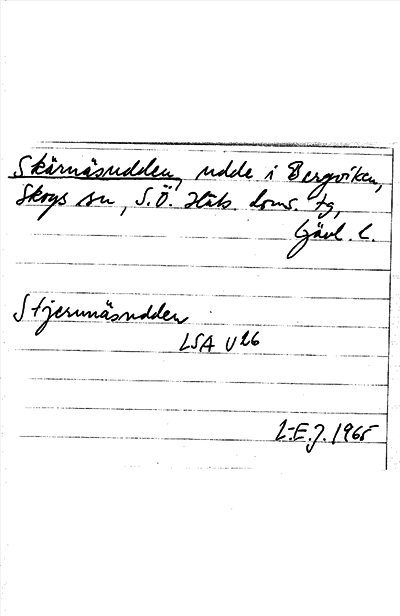 Skärnäsudden, udde i Bergviken,
Skogs sn, S.Ö. Häls. doms. tg,
Gävl. l.
Stjernnäsudden
LSA U26
L-E.J. 1965